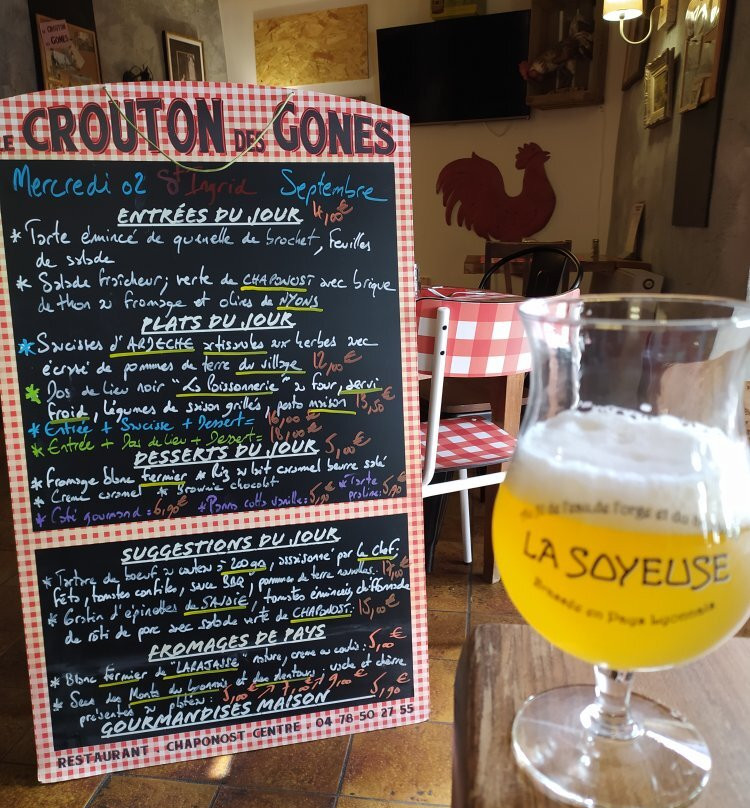 LE CROUTON DES GONES
Mercredi 02 St Ingrid Septembre
ENTRÉES DU JOUR 4,00€
* Tarte émincé de quenelle de brochet, feuilles
de salade
* Salade fraîcheur; verte de CHAPONOST avec brique
de thon au fromage et olives de NYONS
PLATS DU JOUR
* Saucisses d'ARDECHE artisanales aux herbes avec
écrasé de pommes de terre du village 12,00€
* Dos de lieu noir "La Poissonnerie" au four, servi
froid, légumes de saison grillés, pesto maison 13,50€
* Entrée + Saucisse + Dessert= 16,00€
* Entrée + Dos de lieu + Dessert= 18,00€
DESSERTS DU JOUR 5,00€
* Fromage blanc fermier * Riz au lait caramel beurre salé
* Creme caramel * Brownie chocolat
* Café gourmand = 6,90€ * Panna cotta vanille= 5,90€ * Tarte
praline= 5,90€
SUGGESTIONS DU JOUR
* Tartare de boeuf au couteau ≃ 200gr, assaisonné par le chef,
tomates confites, sauce BBQ, pommes de terre
* Gratin d'épinettes de SAVOIE, tomates émincées, chiffonnade
de rôti de porc avec salade verte de CHAPONOST: 15,00€
FROMAGES DE PAYS
* Blanc fermier de "LARAJASSE" nature, creme ou coulis: 5,00€
* Secs des Monts du lyonnais et des alentours: vache et chèvre
présentés au plateau: 5,90€
GOURMANDISES MAISON
RESTAURANT: CHAPONOST CENTRE: 04 78 50 27 55
LE CROUTON DES GONES
LA SOYEUSE
Brassée en Pays Lyonnais